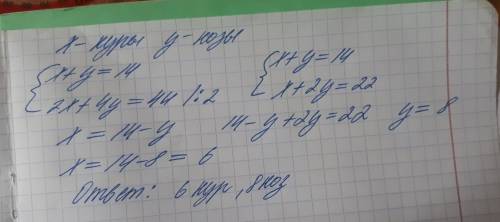 x - куры y - козы
{ x+y=14 { x+y=14
2x+4y=44 /:2 x+2y=22
x = 14-y 14-y+2y=22 y=8
x = 14-8 = 6
Ответ: 6 кур, 8 коз